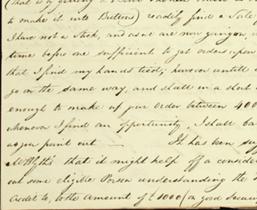 to make it into Buttons) readily find a Sale
I have not a Stock, and as we are now going on,
time before we sufficient to get orders upon
that I find my hands tied; however untill
go on the same way, and shall in a short
enough to make up your order between 400
whenever I find an opportunity. I shall
as you point out — It has been
that it might help off a
out some eligible Person understanding the
Credit to, to the Amount of £1000 (on good